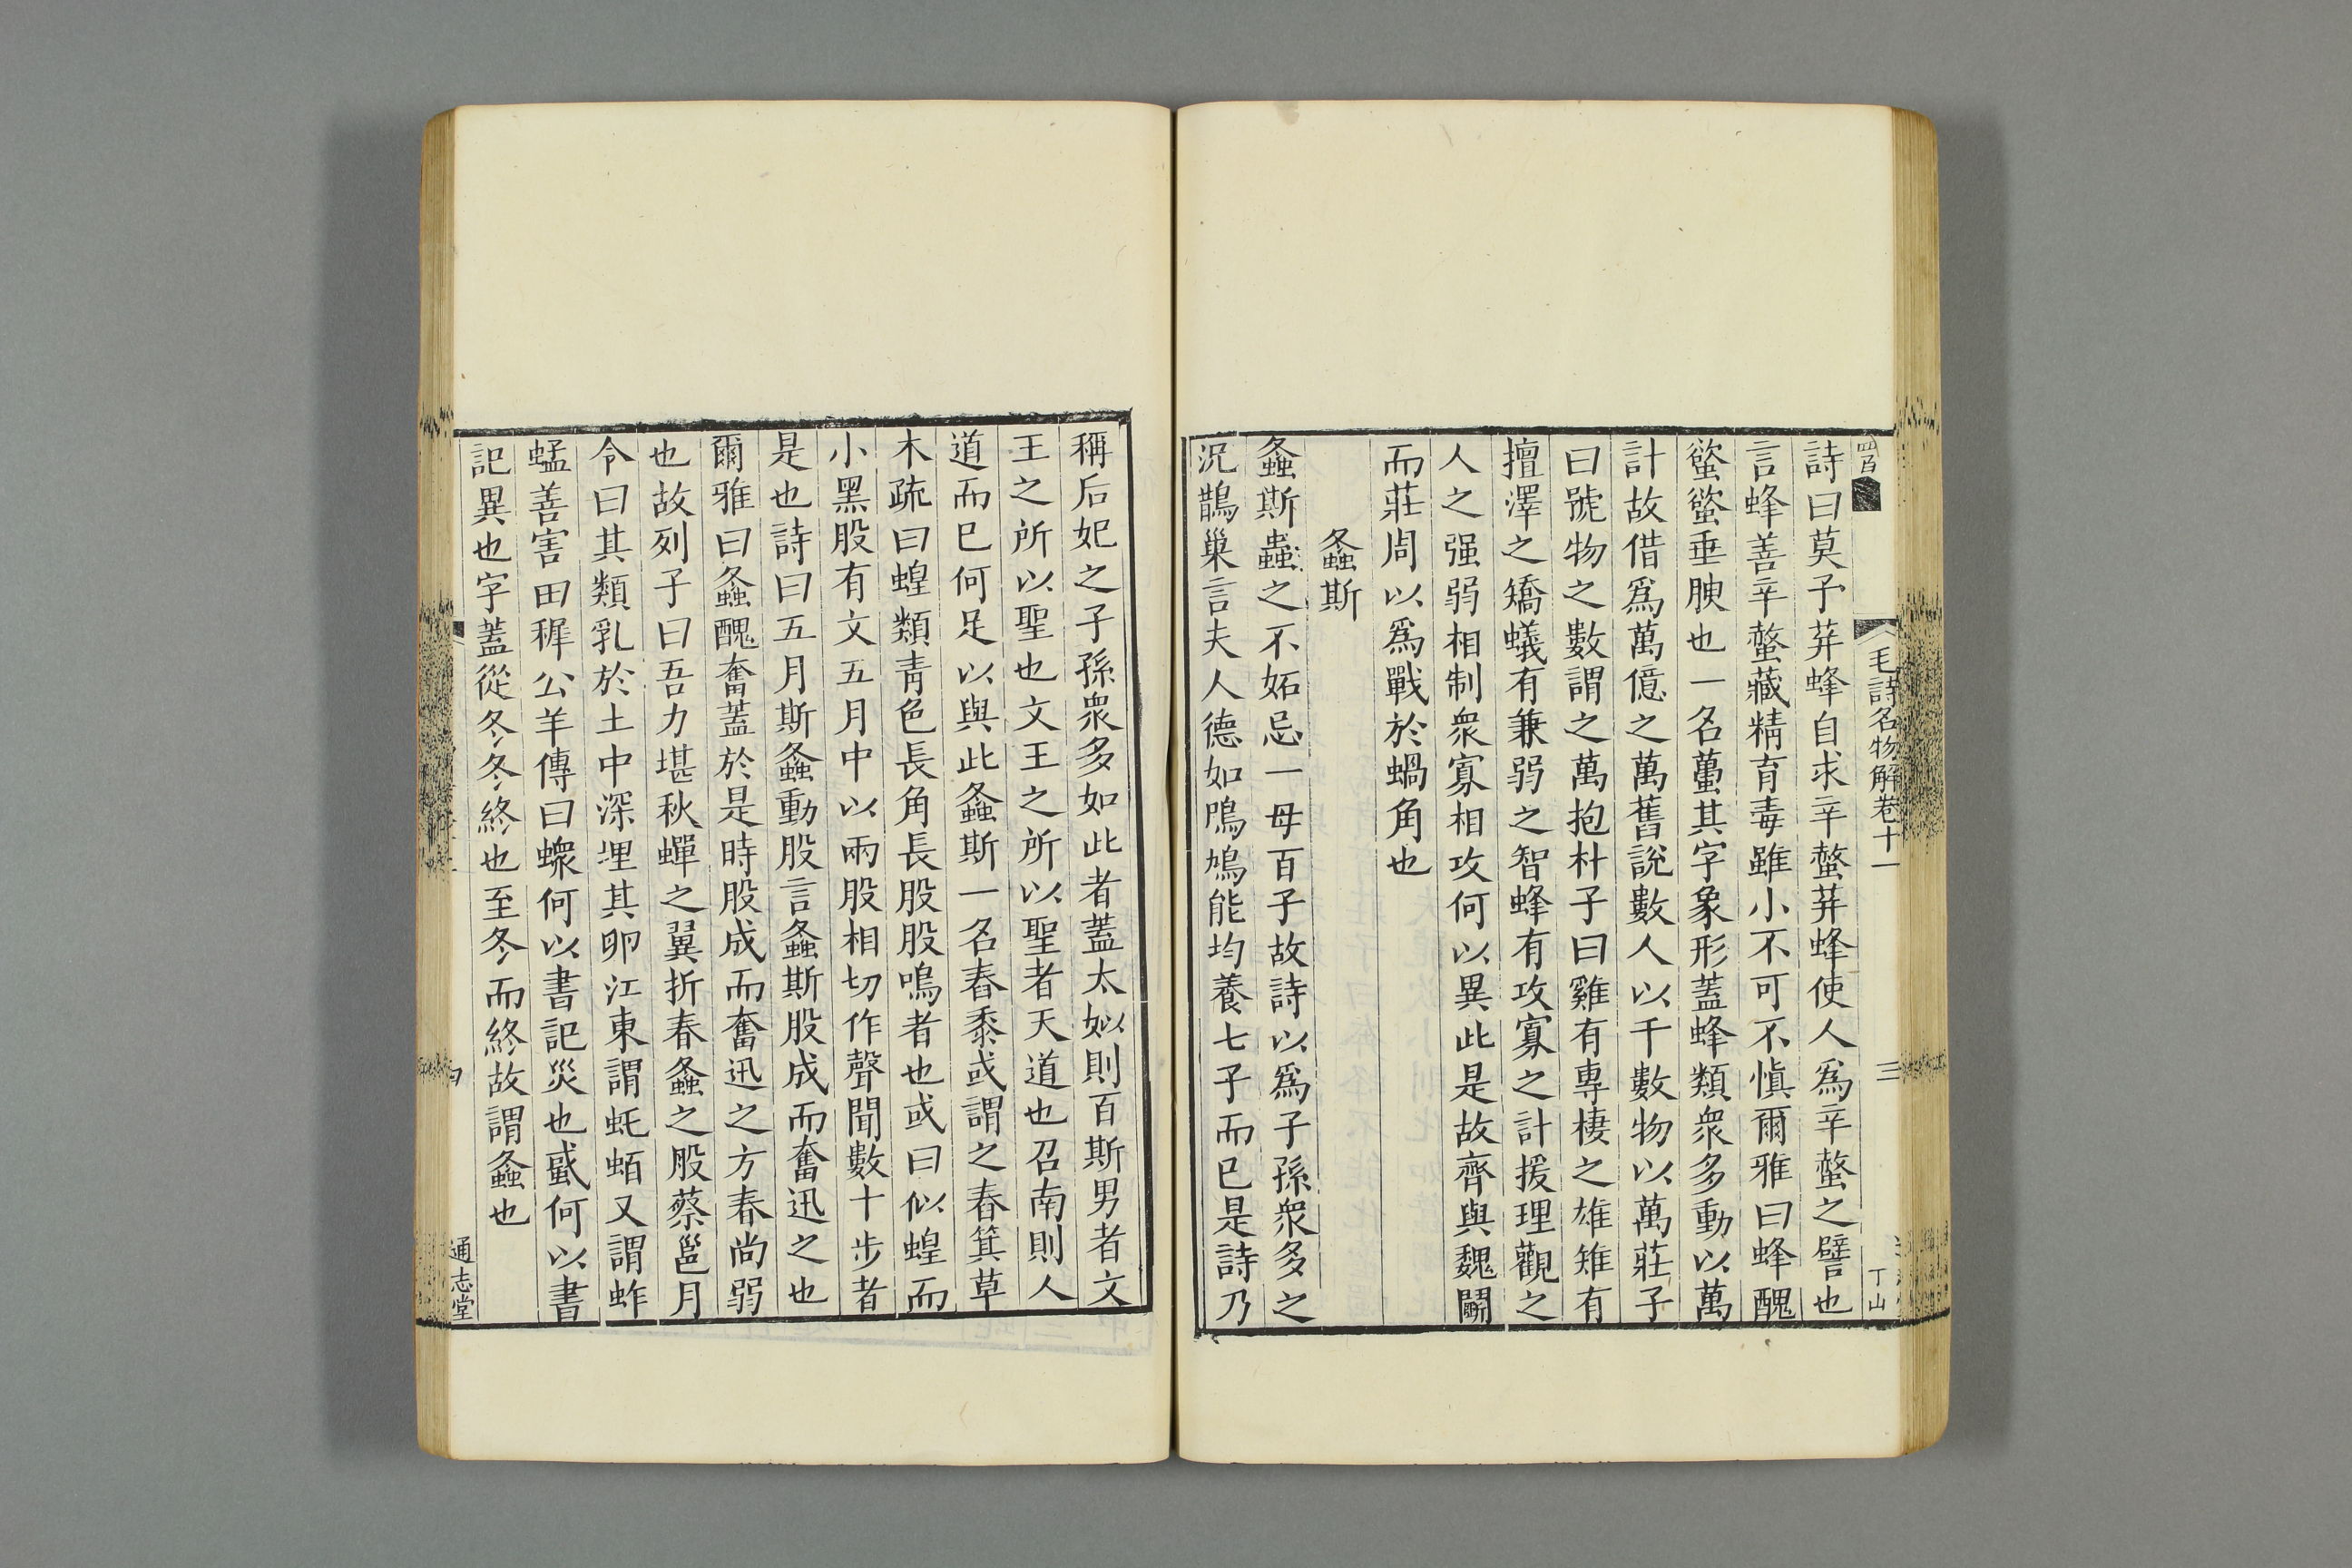 四百
毛詩名物解卷十一
三
丁山
詩曰莫予荓蜂自求辛螫荓蜂使人爲辛螫之譬也
言蜂善辛螫藏精育毒雖小不可不愼爾雅曰蜂醜
螸螸垂腴也一名蠆其字象形蓋蜂類衆多動以萬
計故借爲萬億之萬舊說數人以千數物以萬莊子
曰號物之數謂之萬抱朴子曰雞有專棲之雄雉有
擅澤之矯蟻有兼弱之智蜂有攻寡之計援理觀之
人之强弱相制衆寡相攻何以異此是故齊與魏鬭
而莊周以爲戰於蝸角也
螽斯
螽斯蟲之不妬忌一母百子故詩以爲子孫衆多之
況鵲巢言夫人德如鳲鳩能均養七子而已是詩乃
稱后妃之子孫衆多如此者蓋太姒則百斯男者文
王之所以聖也文王之所以聖者天道也召南則人
道而已何足以與此螽斯一名舂黍或謂之舂箕草
木疏曰蝗類靑色長角長股股鳴者也或曰似蝗而
小黑股有文五月中以兩股相切作聲聞數十步者
是也詩曰五月斯螽動股言螽斯股成而奮迅之也
爾雅曰螽醜奮蓋於是時股成而奮迅之方春尚弱
也故列子曰吾力堪秋蟬之翼折春螽之股蔡邕月
令曰其類乳於土中深埋其卵江東謂虴蛨又謂蚱
蜢善害田穉公羊傳曰蠓何以書記災也蜚何以書
記異也字蓋從冬冬終也至冬而終故謂螽也
通志堂